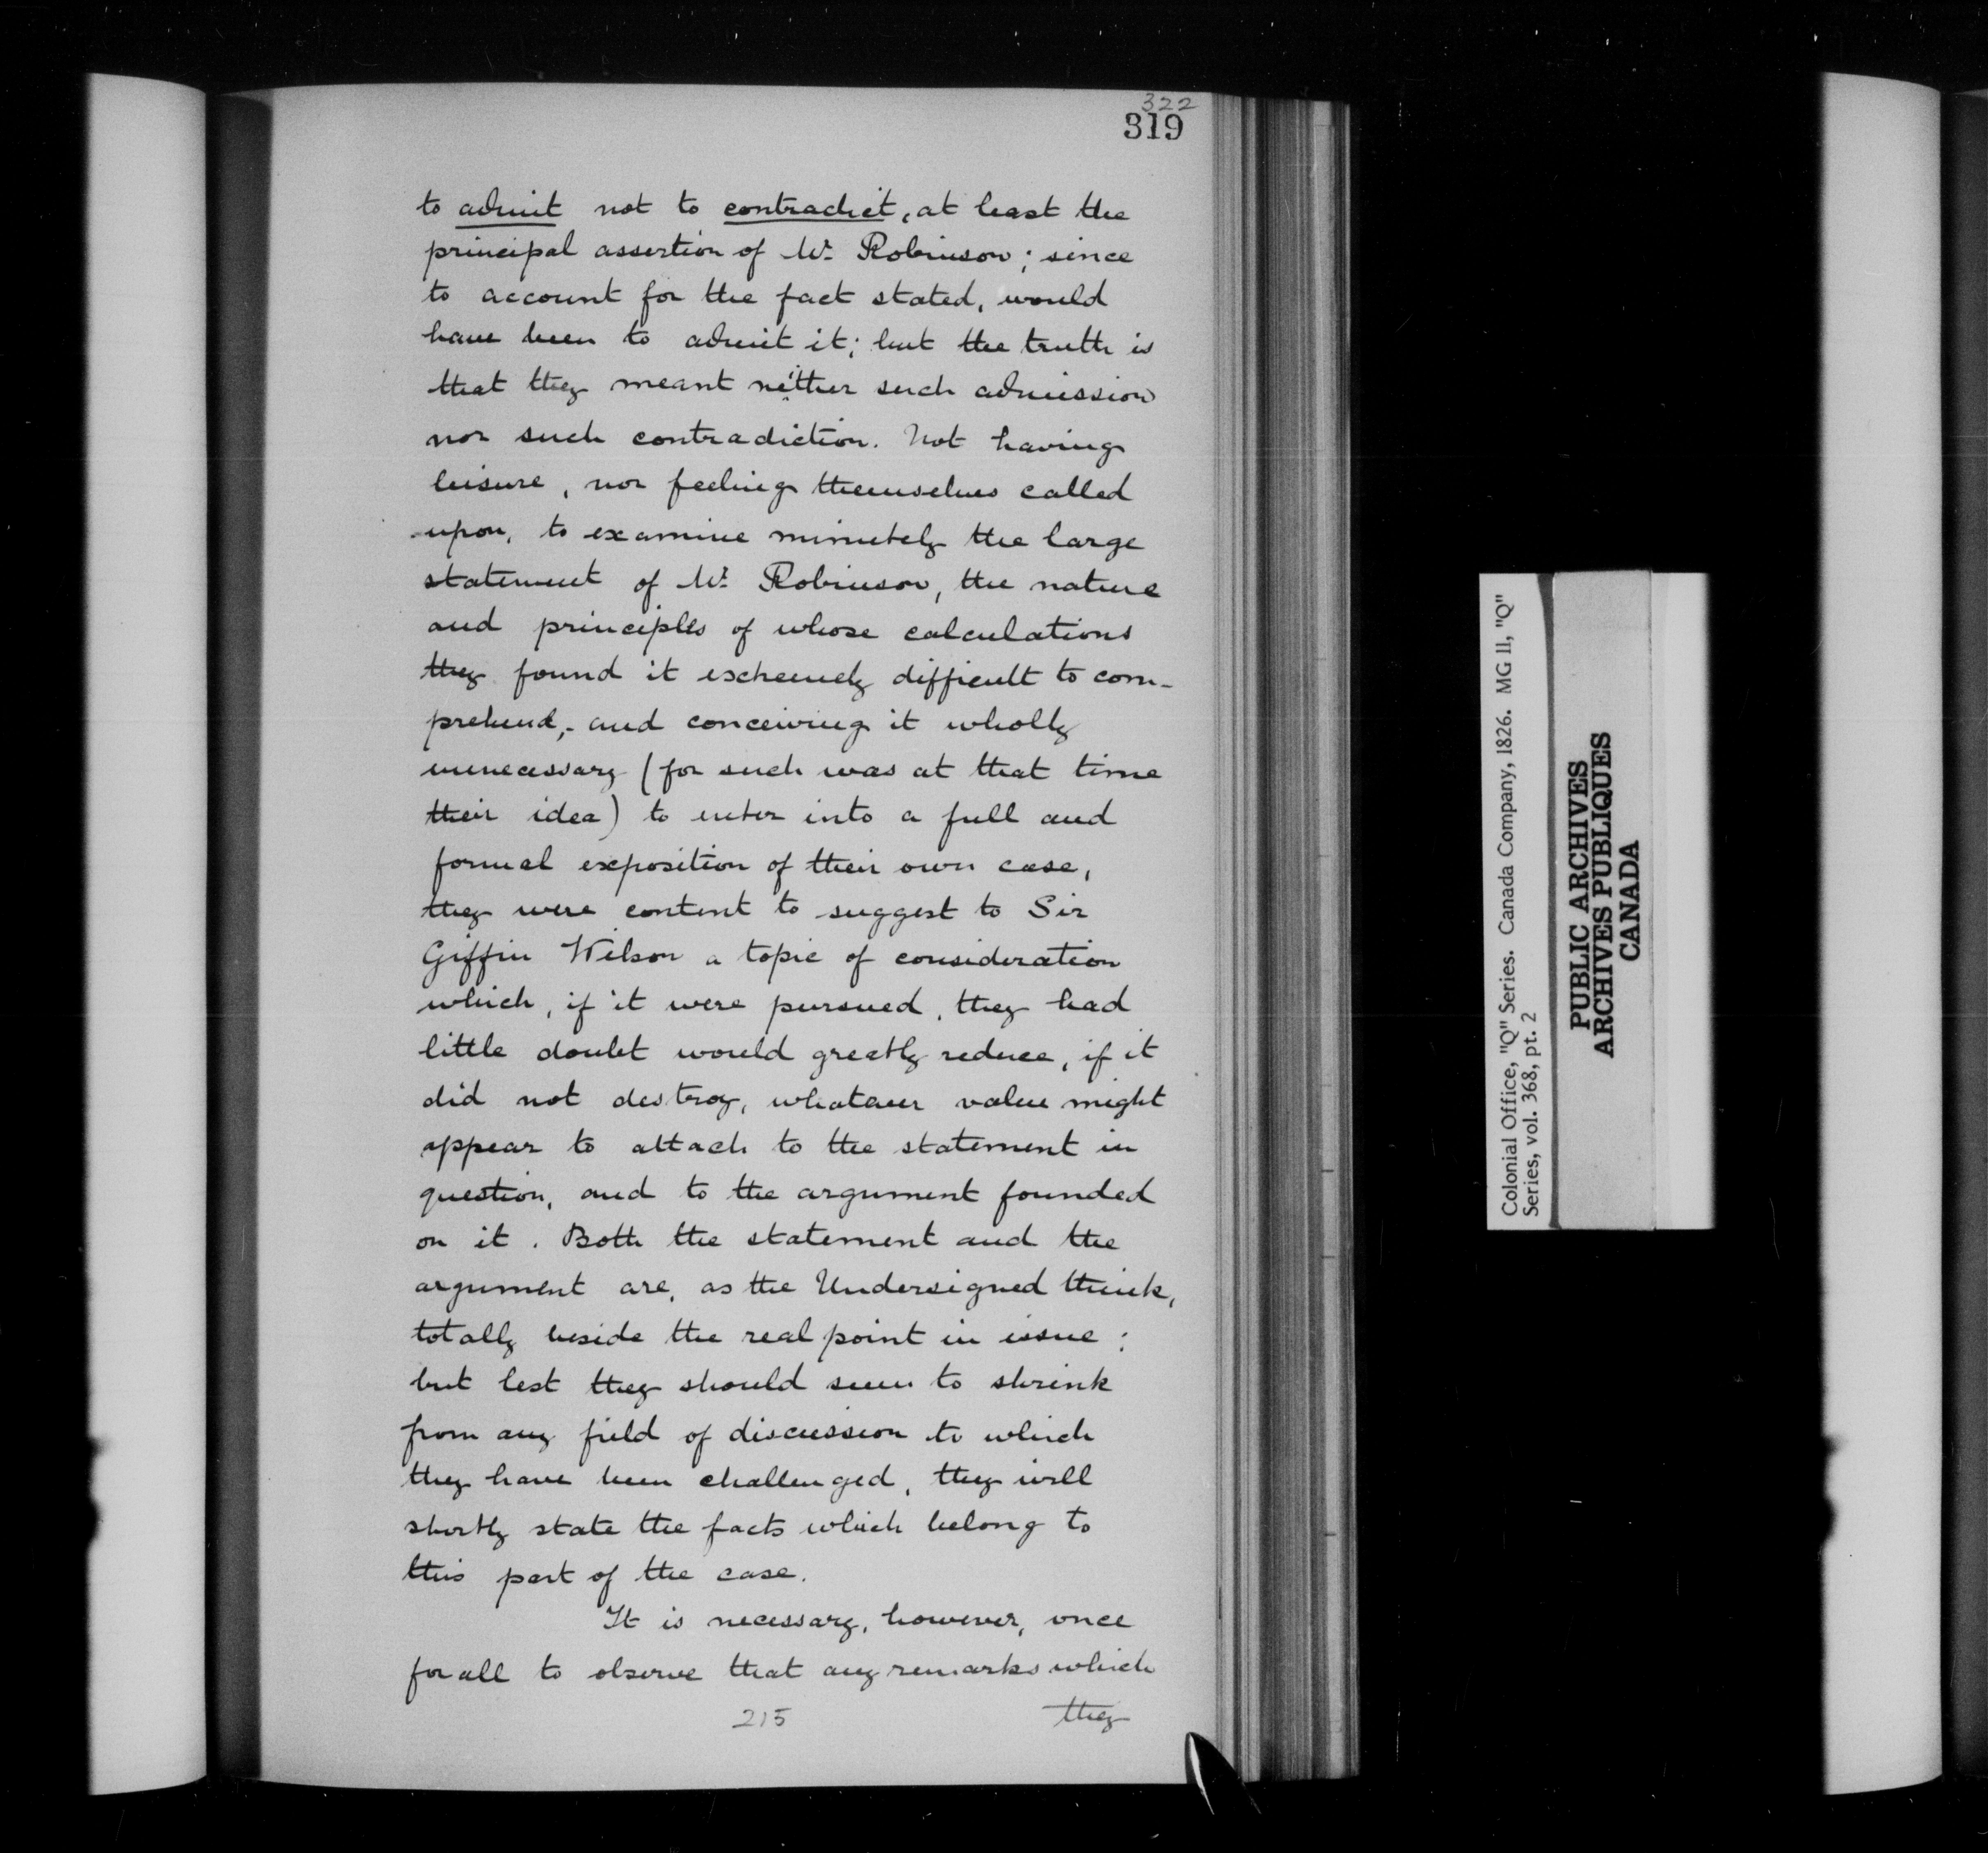 322
319
to admit not to contradict, at least the
principal assertion of Mr. Robinson; since
to account for the fact stated, would
have been to admit it; but the truth is
that they meant neither such admission
nor such contradiction. Not having
leisure, nor feeling themselves called
upon, to examine minutely the large
statement of Mr. Robinson, the nature
and principles of whose calculations
they found it extremely difficult to com-
prehend,- and conceiving it wholly
unnecessary (for such was at that time
their idea) to enter into a full and
formal exposition of their own case,
they were content to suggest to Sir
Giffin Wilson a topic of consideration
which, if it were pursued, they had
little doubt would greatly reduce, if it
did not destroy, whatever value might
appear to attach to the statement in
question, and to the argument founded
on it. Both the statement and the
argument are, as the Undersigned think,
totally beside the real point in issue;
but lest they should seem to shrink
from any field of discussion to which
they have been challenged, they will
shortly state the facts which belong to
this part of the case.
It is necessary, however, once
for all to observe that any remarks which
215 they
Colonial Office, "Q" Series. Canada Company, 1826. MG 11, "Q"
Series, vol. 368, pt. 2
PUBLIC ARCHIVES
ARCHIVES PUBLIQUES
CANADA